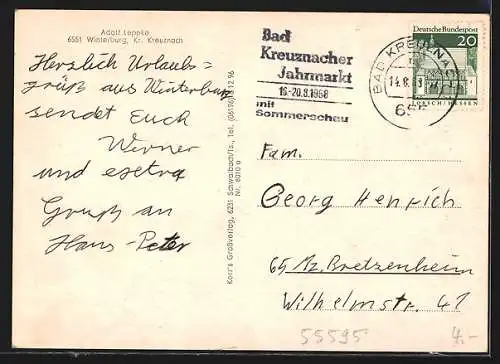 Adolf Leppke
6551 Winterburg, Kr. Kreuznach
Herzlich Urlaubs=
grüß aus Winterburg
sendet Euch
Werner
und
Gruß an
Hans-Peter
Korr's Großverlag, 6231 Schwalbach/Ts., Tel. (06196) 12 96
Nr. 8010 e
Bad
Kreuznacher
Jahrmarkt
16.-20.8.1968
mit
Sommerschau
BAD KREUZNACH
14.8.
Deutsche Bundespost
20
LORSCH/HESSEN
Fam.
Georg Henrich
65 Mz. Bretzenheim
Wilhelmstr. 41
55595
4.-